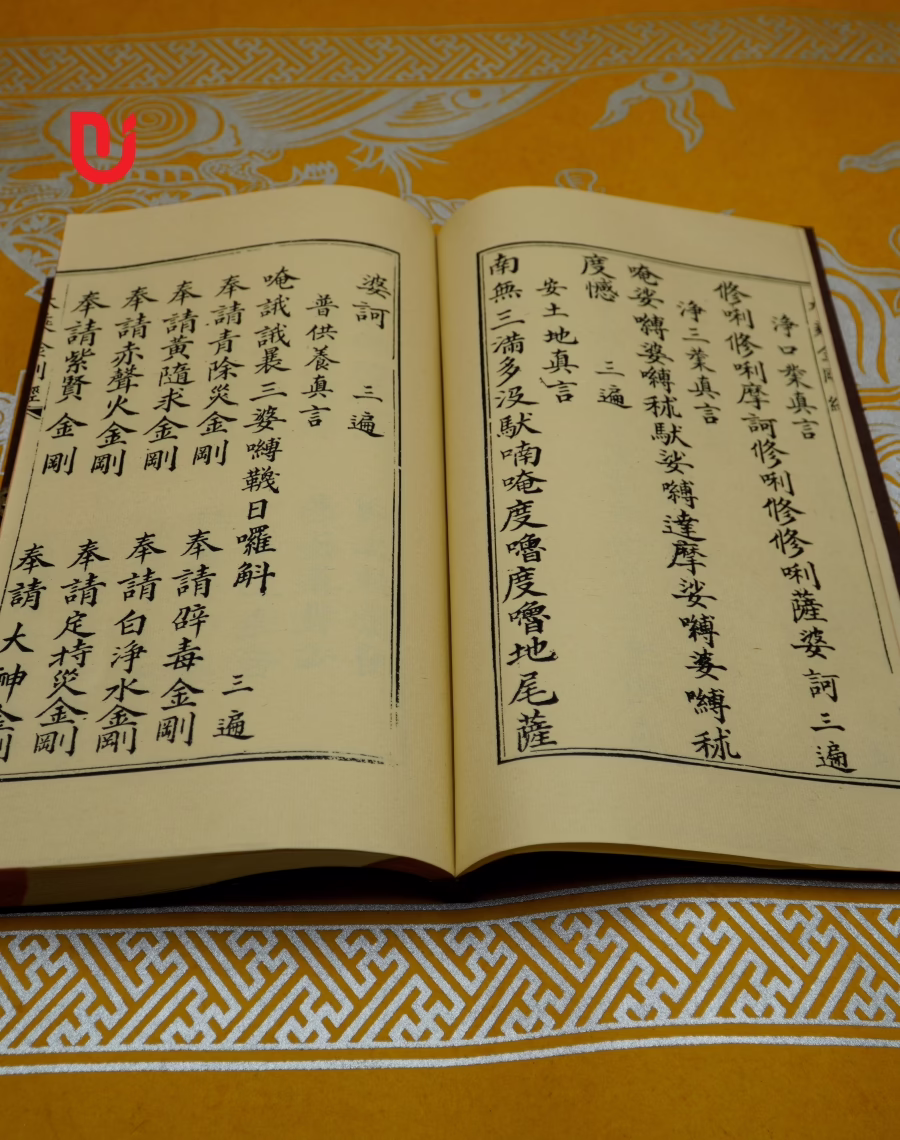 淨口業真言
修唎修唎摩訶修唎修修唎薩婆訶三遍
淨三業真言
唵娑嚩婆嚩秫馱娑嚩達摩娑嚩婆嚩秫
度憾 三遍
安土地真言
南無三滿多没馱喃唵度嚕度嚕地尾薩
婆訶 三遍
普供養真言
唵誐誐曩三婆嚩韈日囉斛 三遍
奉請青除災金剛 奉請辟毒金剛
奉請黃隨求金剛 奉請白淨水金剛
奉請赤聲火金剛 奉請定持災金剛
奉請紫賢金剛 奉請大神金剛